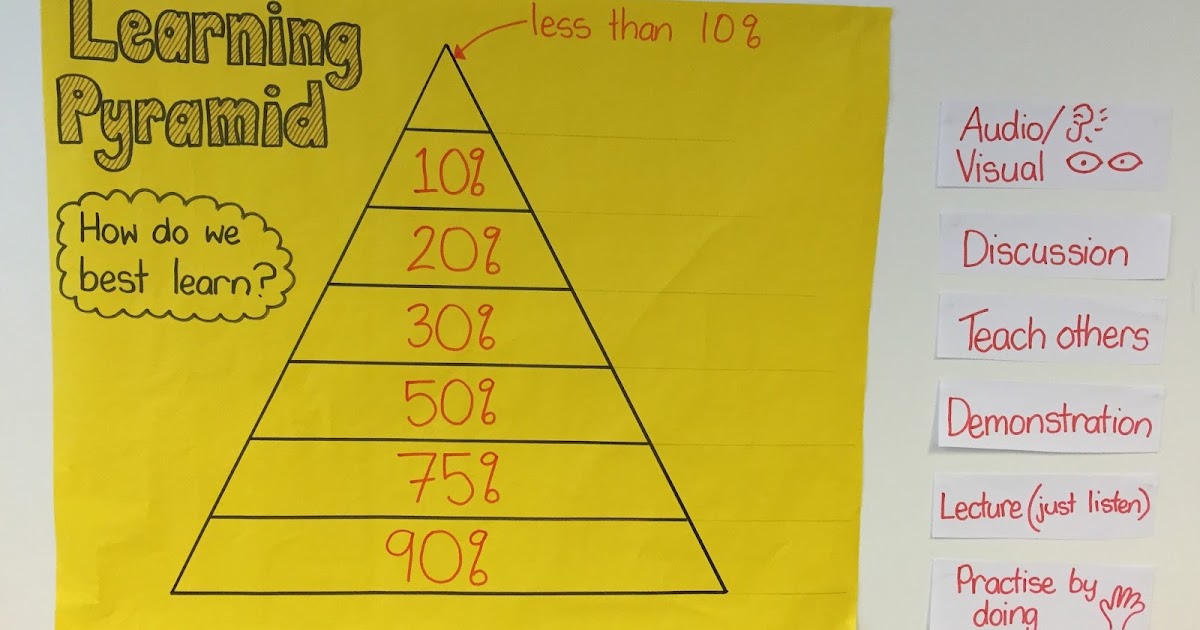 Learning
Pyramid
less than 10%
How do we
best learn?
10%
20%
30%
50%
75%
90%
Audio/
Visual
Discussion
Teach others
Demonstration
Lecture (just listen)
Practise by
doing